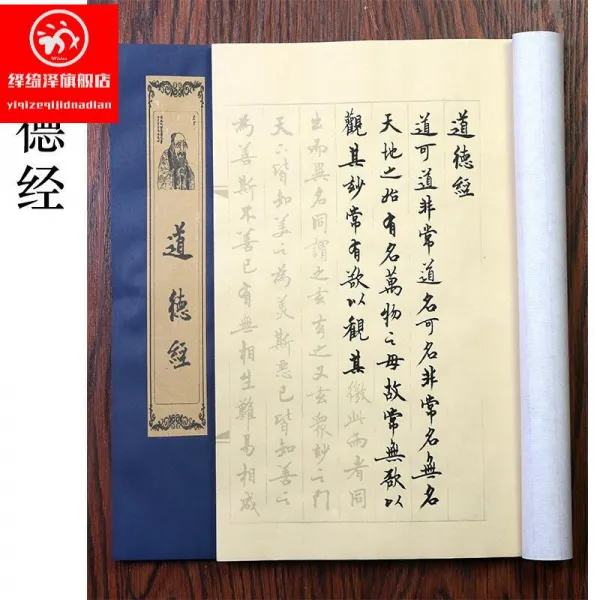 绎绮泽旗舰店
yiqizeqijidnadian
德经
道德經
道德經
道可道非常道名可名非常名無名
天地之始有名萬物之母故常無欲以
觀其玅常有欲以觀其徼此兩者同
出而異名同謂之玄玄之又玄眾玅之門
天下皆知美之為美斯惡已皆知善之
為善斯不善已有無相生難易相成